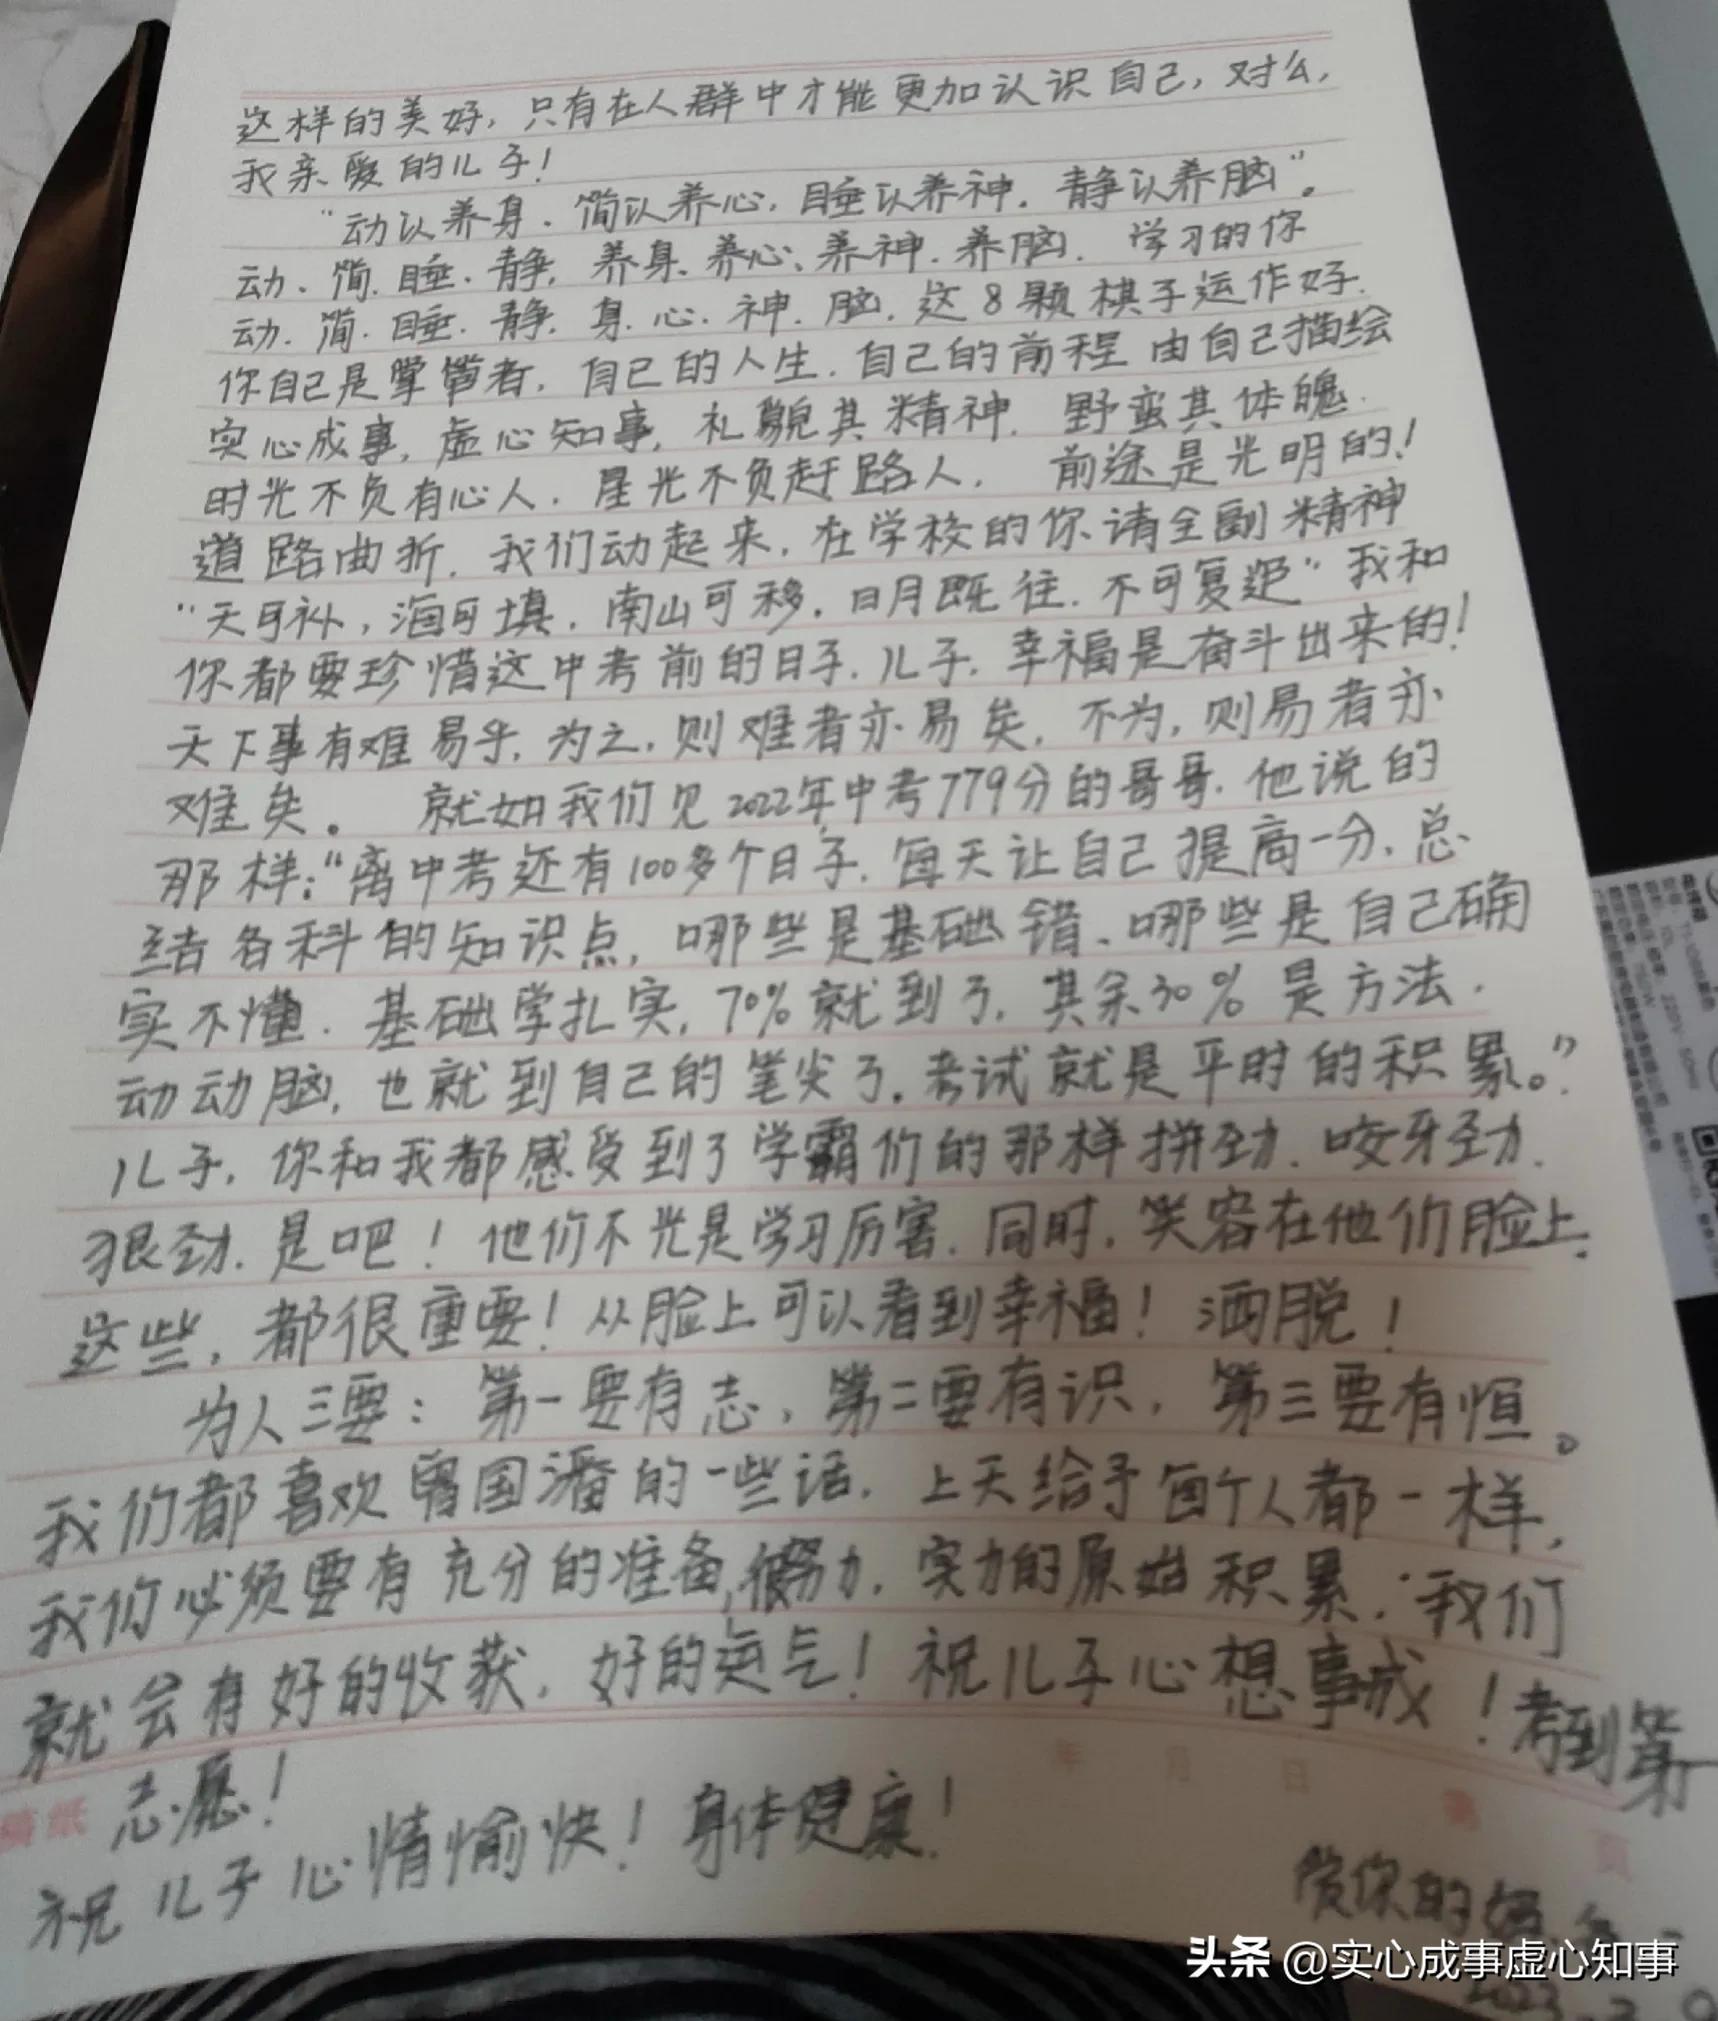 这样的美好，只有在人群中才能更加认识自己，对么，
我亲爱的儿子！
“动以养身、简以养心，睡以养神，静以养脑”。
动、简、睡、静，养身、养心、养神、养脑，学习的你
动、简、睡、静，身、心、神、脑，这8颗棋子运作好，
你自己是掌管者，自己的人生，自己的前程由自己描绘
实心成事，虚心知事，礼貌其精神，野蛮其体魄，
时光不负有心人，星光不负赶路人， 前途是光明的！
道路曲折，我们动起来，在学校的你请全副精神
“天可补，海可填，南山可移，日月既往，不可复追”我和
你都要珍惜这中考前的日子，儿子，幸福是奋斗出来的！
天下事有难易乎，为之，则难者亦易矣，不为，则易者亦
难矣。 就如我们见2022年中考779分的哥哥，他说的
那样：“离中考还有100多个日子，每天让自己提高一分，总
结各科的知识点，哪些是基础错、哪些是自己确
实不懂，基础学扎实，70%就到了，其余30%是方法，
动动脑，也就到自己的笔尖了。考试就是平时的积累。”
儿子，你和我都感受到了学霸们的那样拼劲、咬牙劲、
狠劲，是吧！他们不光是学习厉害，同时，笑容在他们脸上，
这些，都很重要！从脸上可以看到幸福！洒脱！
为人三要：第一要有志，第二要有识，第三要有恒。
我们都喜欢曾国潘的一些话，上天给予每个人都一样，
我们必须要有充分的准备，很努力，实力的原始积累，我们
就会有好的收获，好的运气！祝儿子心想事成！考到第一
志愿！
祝儿子心情愉快！身体健康！
年 月 日
稿纸
第 页
爱你的妈
头条 @实心成事虚心知事